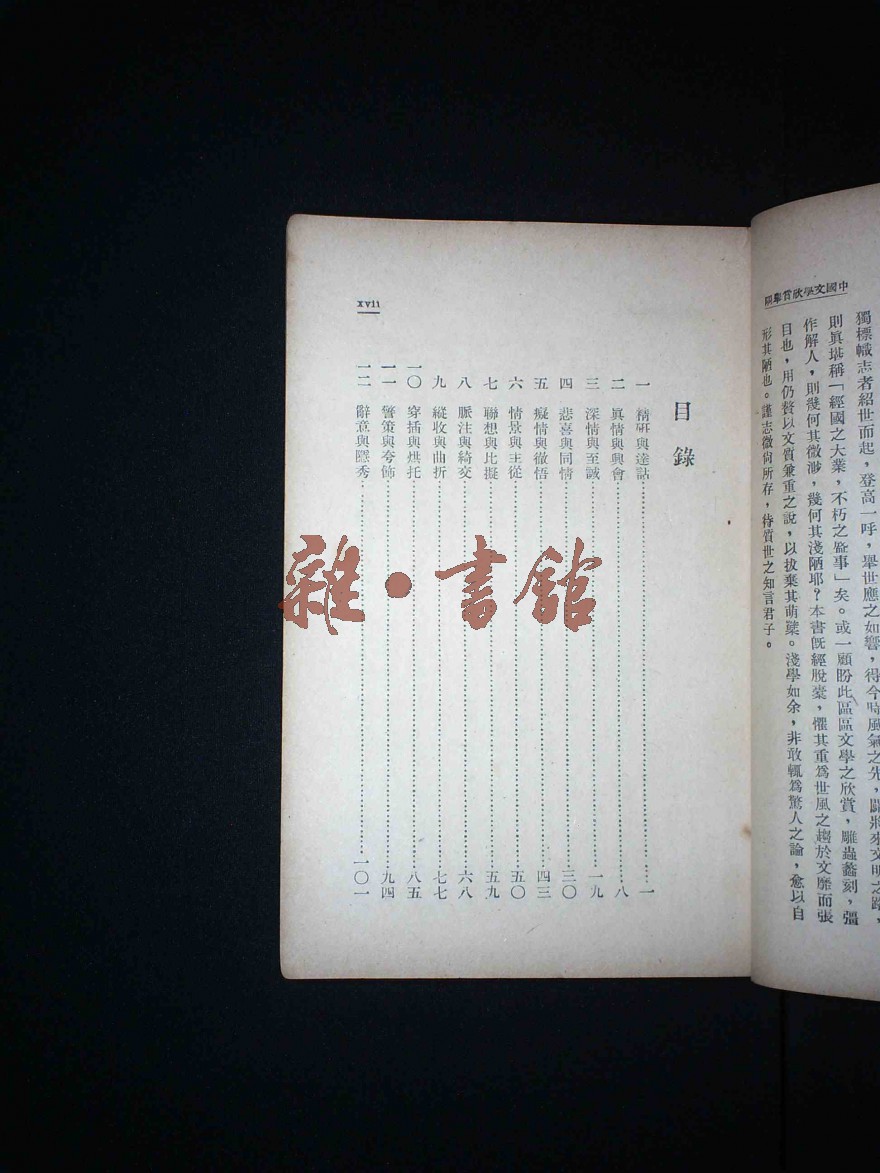 中國文學欣賞舉隅
獨標幟志者紹世而起，登高一呼，舉世應之如響，得今時風氣之先，闢將來文明之路，
則眞堪稱「經國之大業，不朽之盛事」矣。或一顧盼此區區文學之欣賞，雕蟲蠡刻，彊
作解人，則幾何其微渺，幾何其淺陋耶？本書旣經脫稾，懼其重爲世風之趨於文靡而張
目也，用仍贅以文質兼重之說，以拔棄其萌櫱。淺學如余，非敢輒爲驚人之論，愈以自
形其陋也。謹志微尙所存，待質世之知言君子。
目錄
一 精硏與達詁……一
二 眞情與興會……八
三 深情與至誠……一九
四 悲喜與同情……三〇
五 癡情與徹悟……四三
六 情景與主從……五〇
七 聯想與比擬……五九
八 脈注與綺交……六八
九 縱收與曲折……七七
一〇 穿插與烘托……八五
一一 警策與夸飾……九四
一二 辭意與隱秀……一〇一
xvii
雜·書館